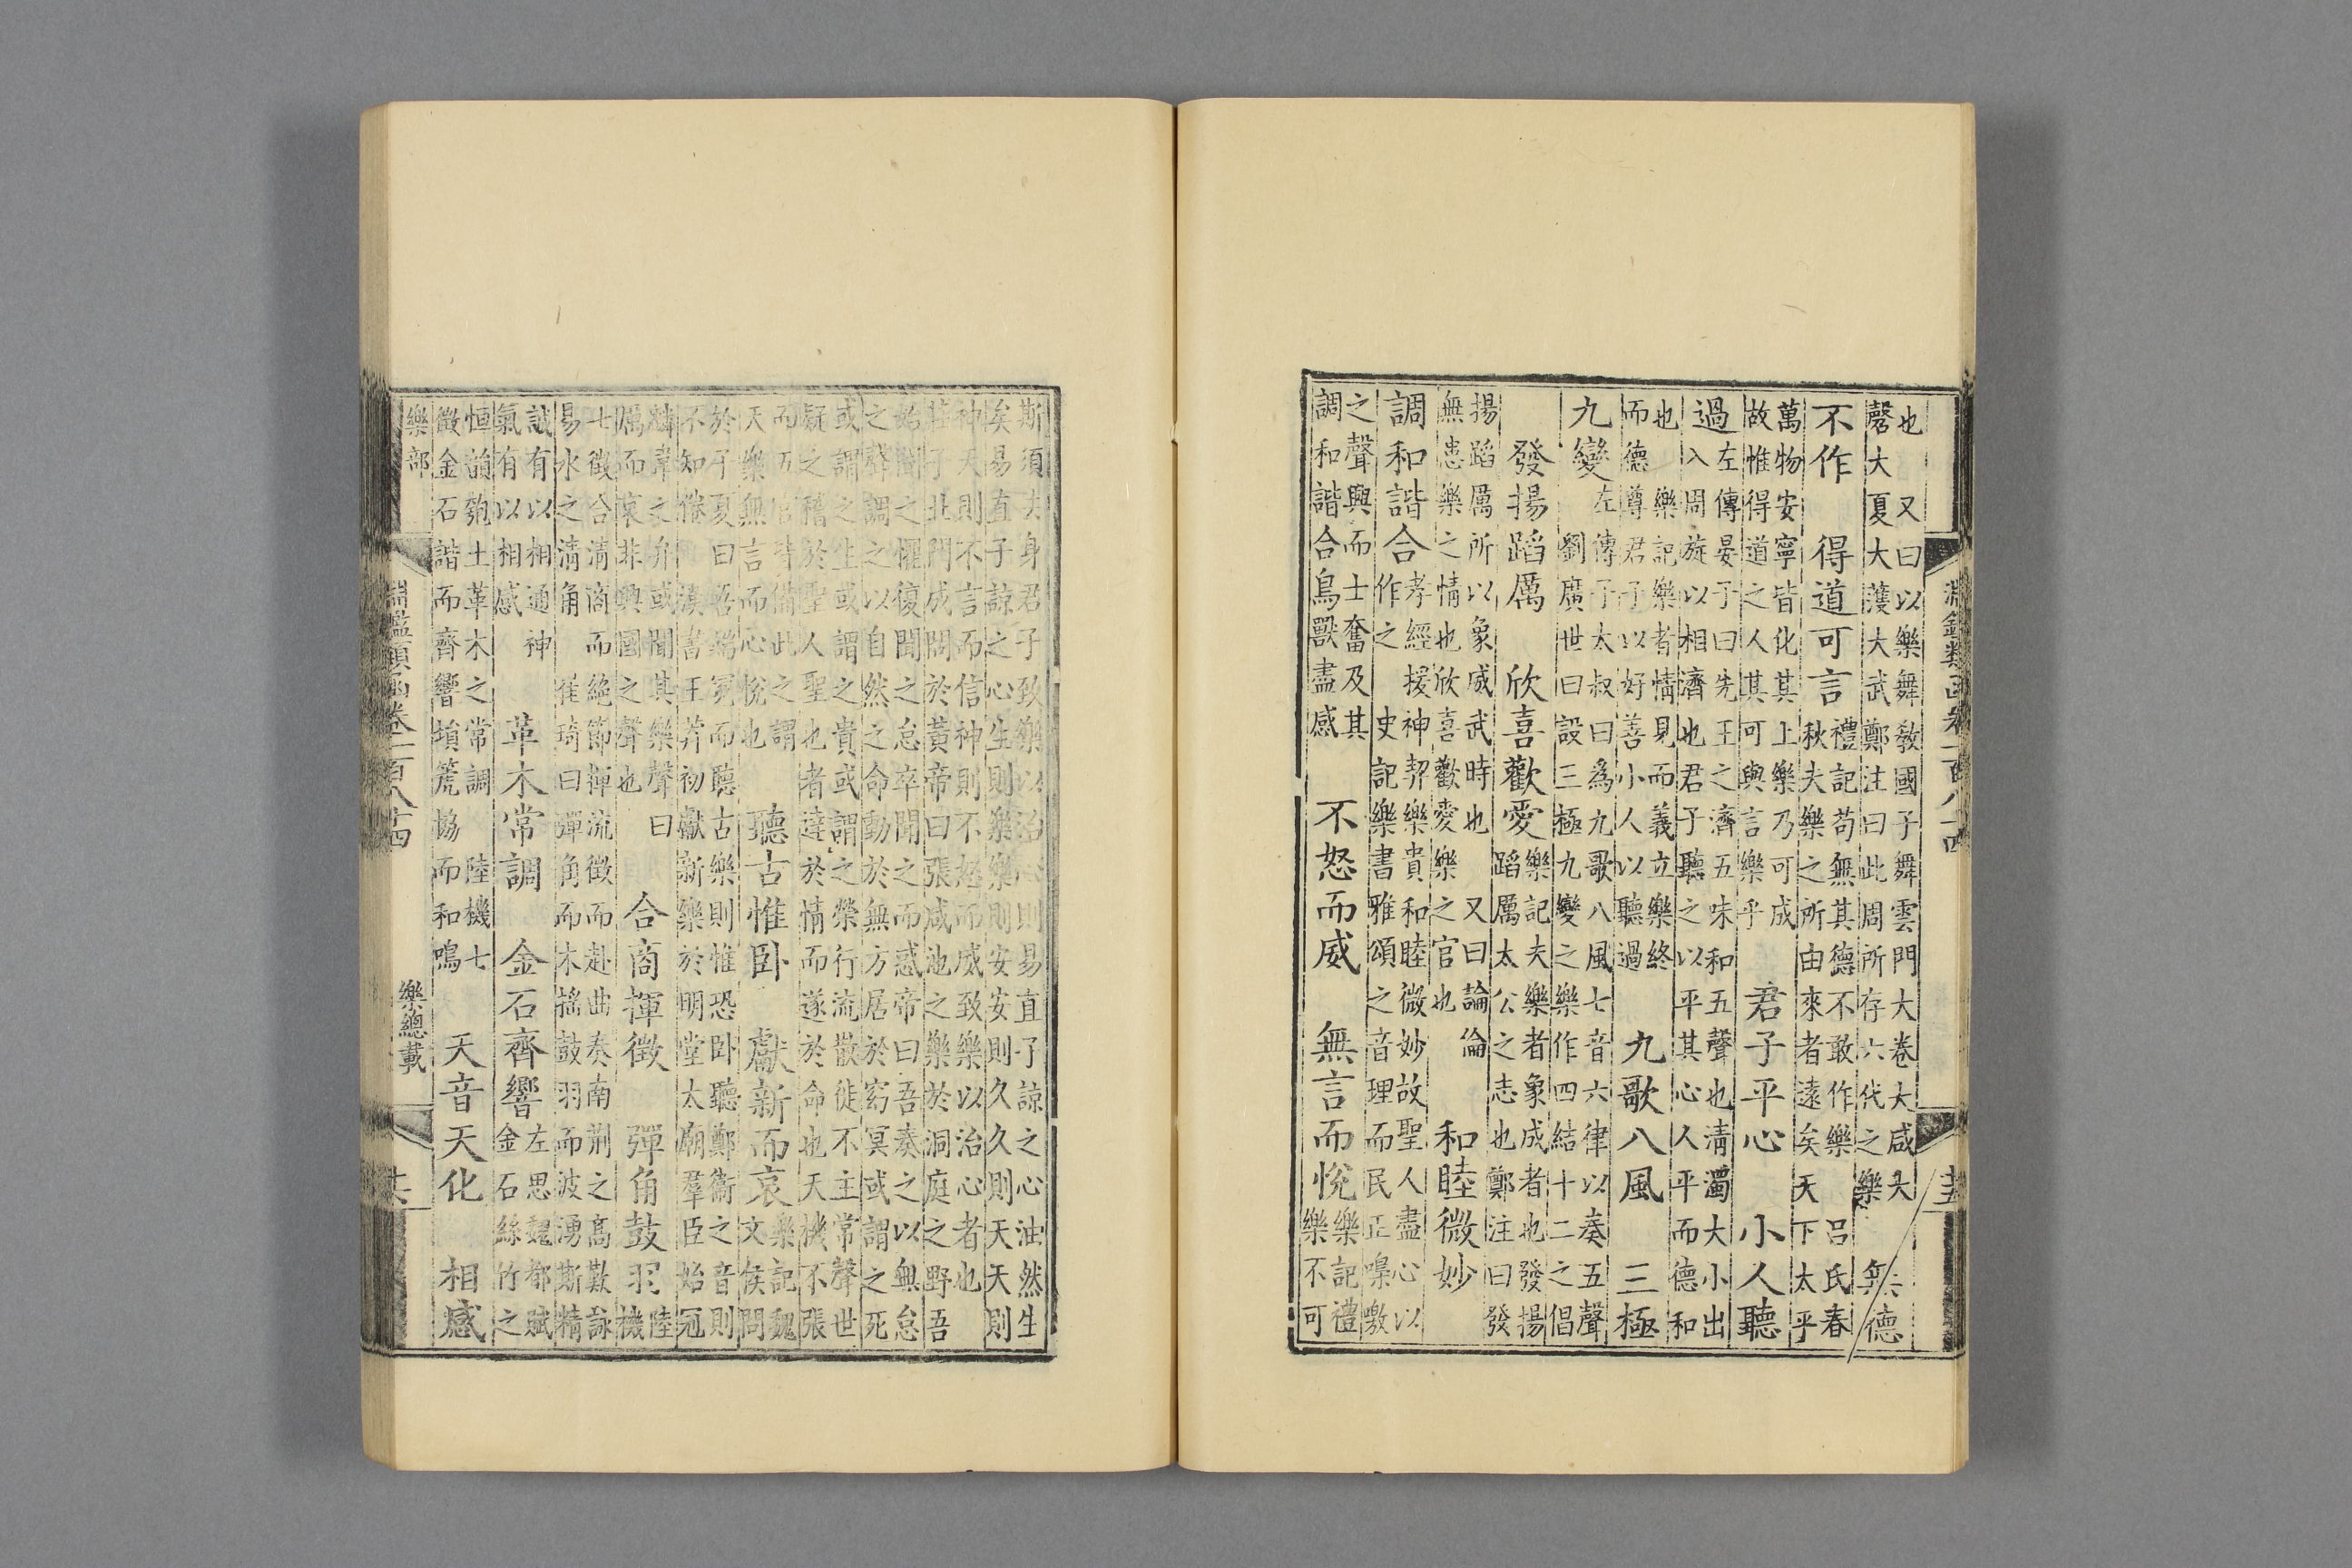 淵鑑類函卷一百八十四 十五
也 又曰以樂舞敎國子舞雲門大卷大咸大
磬大夏大濩大武鄭注曰此周所存六代之樂 無德
不作 得道可言 禮記苟無其德不敢作樂 呂氏春
秋夫樂之所由來者遠矣天下太平
萬物安寧皆化其上樂乃可成
故惟得道之人其可與言樂乎 君子平心 小人聽
過 左傳晏子曰先王之濟五味和五聲也淸濁大小出
入周旋以相濟也君子聽之以平其心人平而德和
也 樂記樂者情見而義立樂終
而德尊君子以好善小人以聽過 九歌八風 三極
九變 左傳子太叔曰爲九歌八風七音六律以奏五聲
劉廣世曰設三極九變之樂作四結十二之倡
發揚蹈厲 欣喜歡愛 樂記夫樂者象成者也發揚
蹈厲太公之志也鄭注曰發
揚蹈厲所以象威武時也 又曰論倫
無患樂之情也欣喜歡愛樂之官也 和睦微妙
調和諧合 孝經援神契樂貴和睦微妙故聖人盡心以
作之 史記樂書雅頌之音理而民正嘄噭
之聲興而士奮及其
調和諧合鳥獸盡感 不怒而威 無言而悅 樂記禮
樂不可
斯須去身君子致樂以治心則易直子諒之心油然生
矣易直子諒之心生則樂樂則安安則久久則天天則
神天則不言而信神則不怒而威致樂以治心者也
莊子北門成問於黃帝曰張咸池之樂於洞庭之野吾
始聞之懼復聞之怠卒聞之而惑帝曰吾奏之以無怠
之聲調之以自然之命動於無方居於窈冥或謂之死
或謂之生或謂之貴或謂之榮行流散徙不主常聲世
疑之稽於聖人聖也者達於情而遂於命也天機不張
而五官皆備此之謂
天樂無言而心悅也 聽古惟卧 獻新而哀 樂記魏
文侯問
於子夏曰吾端冕而聽古樂則惟恐卧聽鄭衞之音則
不知倦 漢書王莽初獻新樂於明堂太廟羣臣始冠
麟韋之弁或聞其樂聲曰
厲而哀非興國之聲也 合商揮徵 彈角鼓羽 陸
機
七徵合淸商而絶節揮流徵而赴曲奏南荆之高歎詠
易水之淸角 崔琦曰彈角而木搖鼓羽而波湧斯精
誠有以相通神
氣有以相感 革木常調 金石齊響 左思魏都賦
金石絲竹之
恒韻匏土革木之常調 陸機七
徵金石諧而齊響塤箎協而和鳴 天音天化 相感
樂部 淵鑑類函卷一百八十四 樂總載 十六